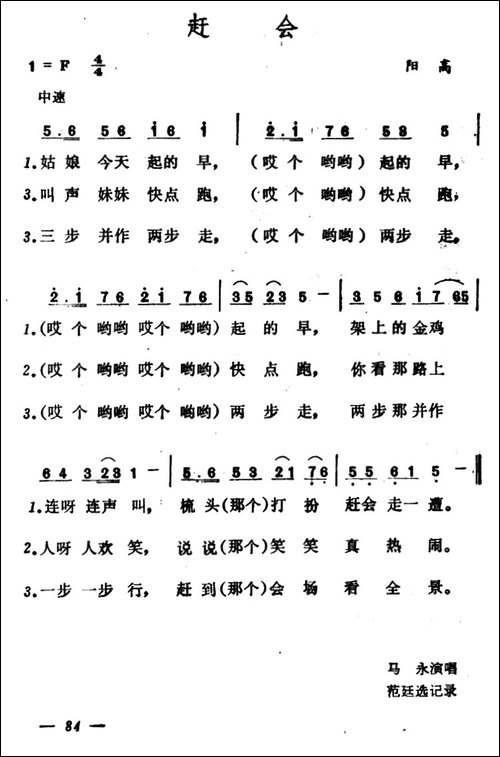 赶 会
1=F 4/4 阳 高
中速
5.6 56 i6 i | 2.i 76 53 5
1.姑 娘 今天 起的 早, (哎 个 哟哟) 起的 早,
3.叫声 妹妹 快点 跑, (哎 个 哟哟) 快点 跑,
3.三步 并作 两步 走, (哎 个 哟哟) 两步 走,
2.i 76 2i 76 | 35 23 5 - | 35 6 i7 65
1.(哎 个 哟哟 哎个 哟哟) 起 的 早, 架上的金鸡
2.(哎 个 哟哟 哎个 哟哟) 快 点 跑, 你看那路上
3.(哎 个 哟哟 哎个 哟哟) 两 步 走, 两步那并作
64 323 1 - | 5.6 53 21 76 | 55 61 5 -
1.连呀 连声 叫, 梳 头(那个)打 扮 赶会 走一 遭。
2.人呀 人欢 笑, 说 说(那个)笑 笑 真 热 闹。
3.一步 一步 行, 赶 到(那个)会 场 看 全 景。
马 永演唱
范廷选记录
— 84 —